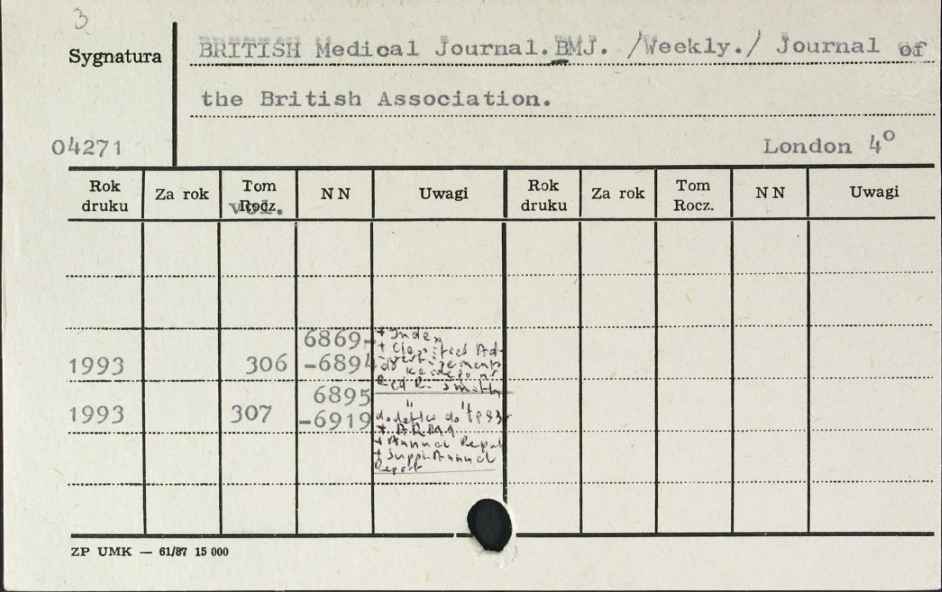 3
Sygnatura
BRITISH Medical Journal. BMJ. /Weekly./ Journal of
the British Association.
04271
London 4º
Rok druku Za rok Tom Rocz. vol. N N Uwagi Rok druku Za rok Tom Rocz. N N Uwagi
1993 306 6869-
-6894
+ Index
+ Classified Ad-
vertisements
Red R. Smith
1993 307 6895
-6919
" "
do 1993
+ ABMA
+ Annual Report
+ Suppl. Annual
Report
ZP UMK — 61/87 15 000